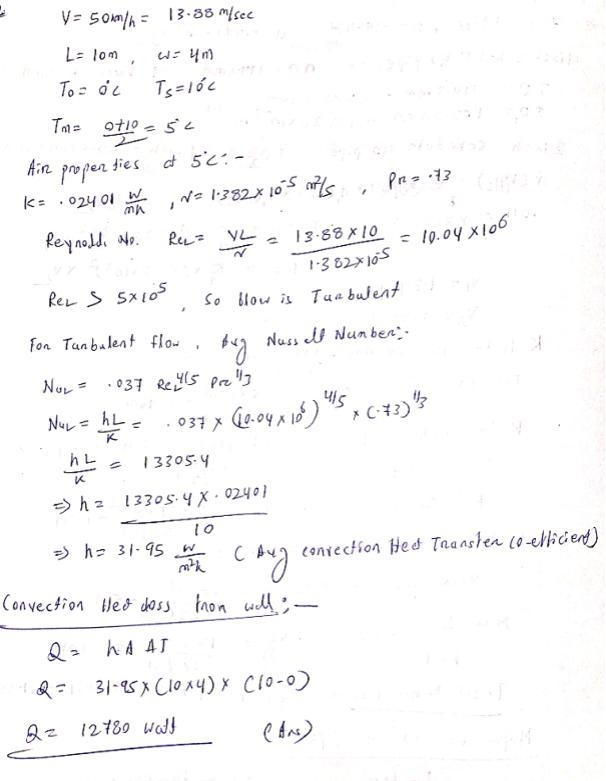 V = 50km/h = 13.88 m/sec
L = 10m , w = 4m
To = 0°c Ts = 10°c
Tm = (0+10)/2 = 5°c
Air properties at 5°c :-
K = .02401 W/mk , ν = 1.382 × 10^-5 m²/s , Pr = .73
Reynolds No. ReL = VL/ν = (13.88 × 10)/(1.382×10^-5) = 10.04 × 10^6
ReL > 5×10^5 , So flow is Turbulent
For Turbulent flow , Avg Nusselt Number:-
NuL = .037 ReL^4/5 Pr^1/3
NuL = hL/K = .037 × (10.04 × 10^6)^4/5 × (.73)^1/3
hL/K = 13305.4
⇒ h = (13305.4 × .02401)/10
⇒ h = 31.95 W/m²k ( Avg convection Heat Transfer co-efficient)
Convection Heat loss from wall :—
Q = h A ΔT
Q = 31.95 × (10×4) × (10-0)
Q = 12780 watt (Ans)